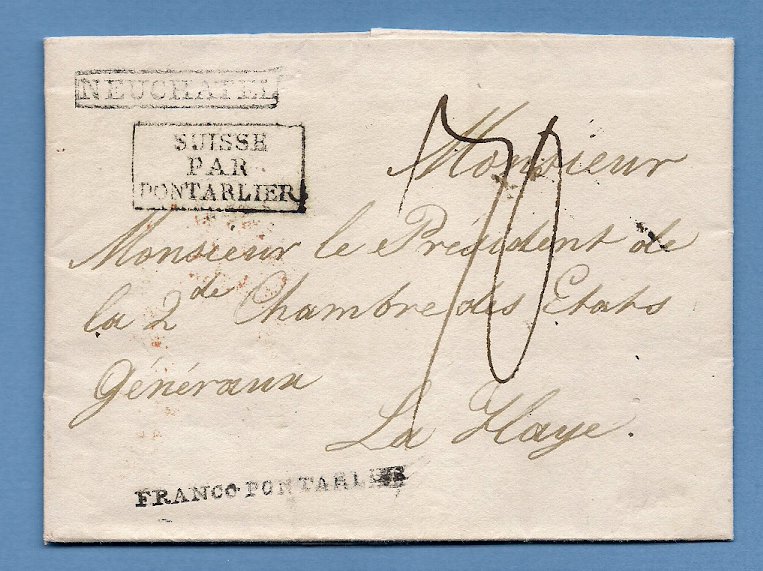 NEUCHATEL
SUISSE
PAR
PONTARLIER
70
Monsieur
Monsieur le Président de
la 2de Chambre des Etats
Généraux
La Haye.
FRANCO PONTARLIER